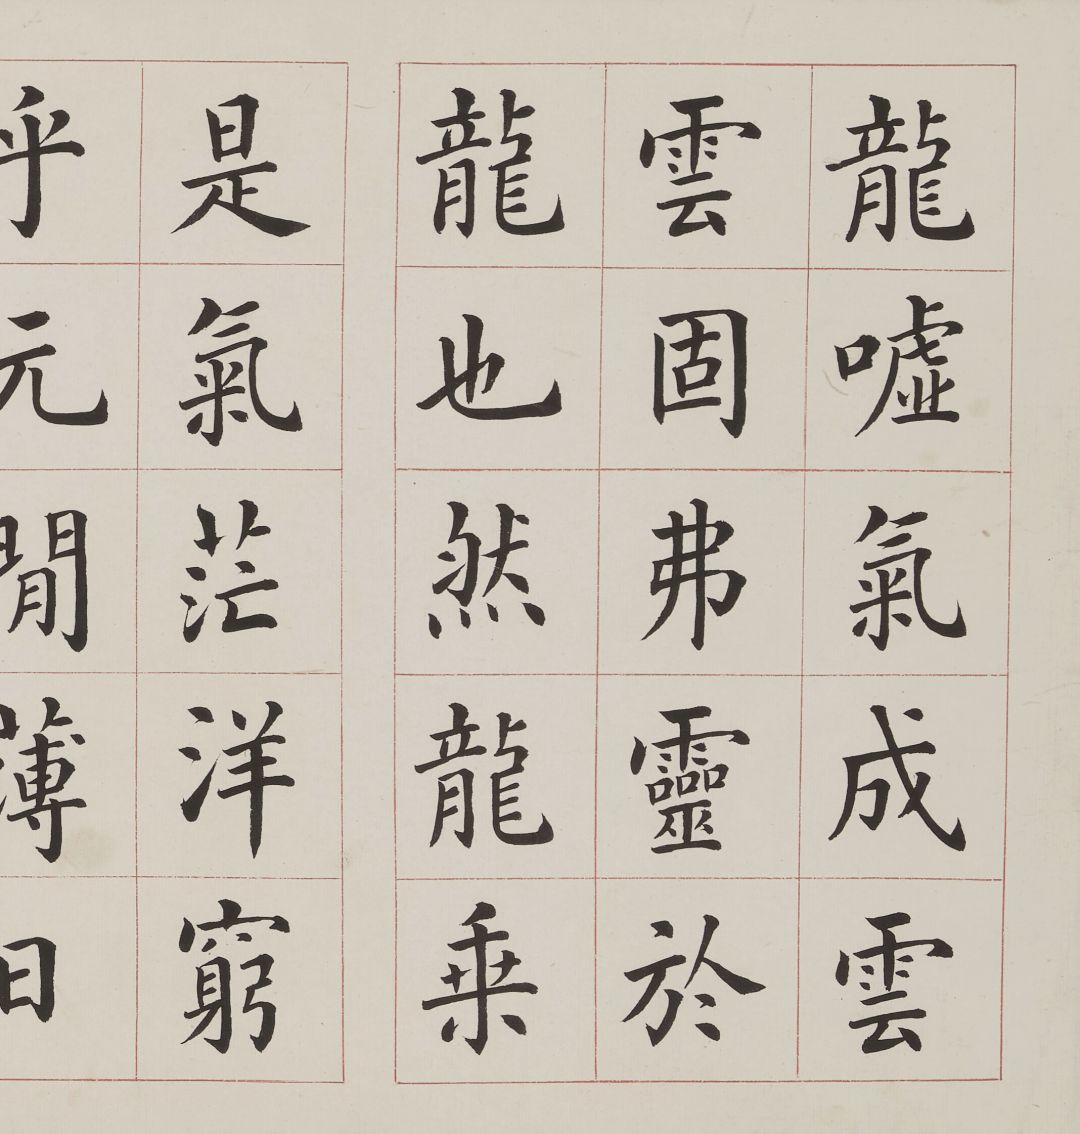 龍噓氣成雲
雲固弗靈於
龍也然龍乗
是氣茫洋窮
乎元閒薄日